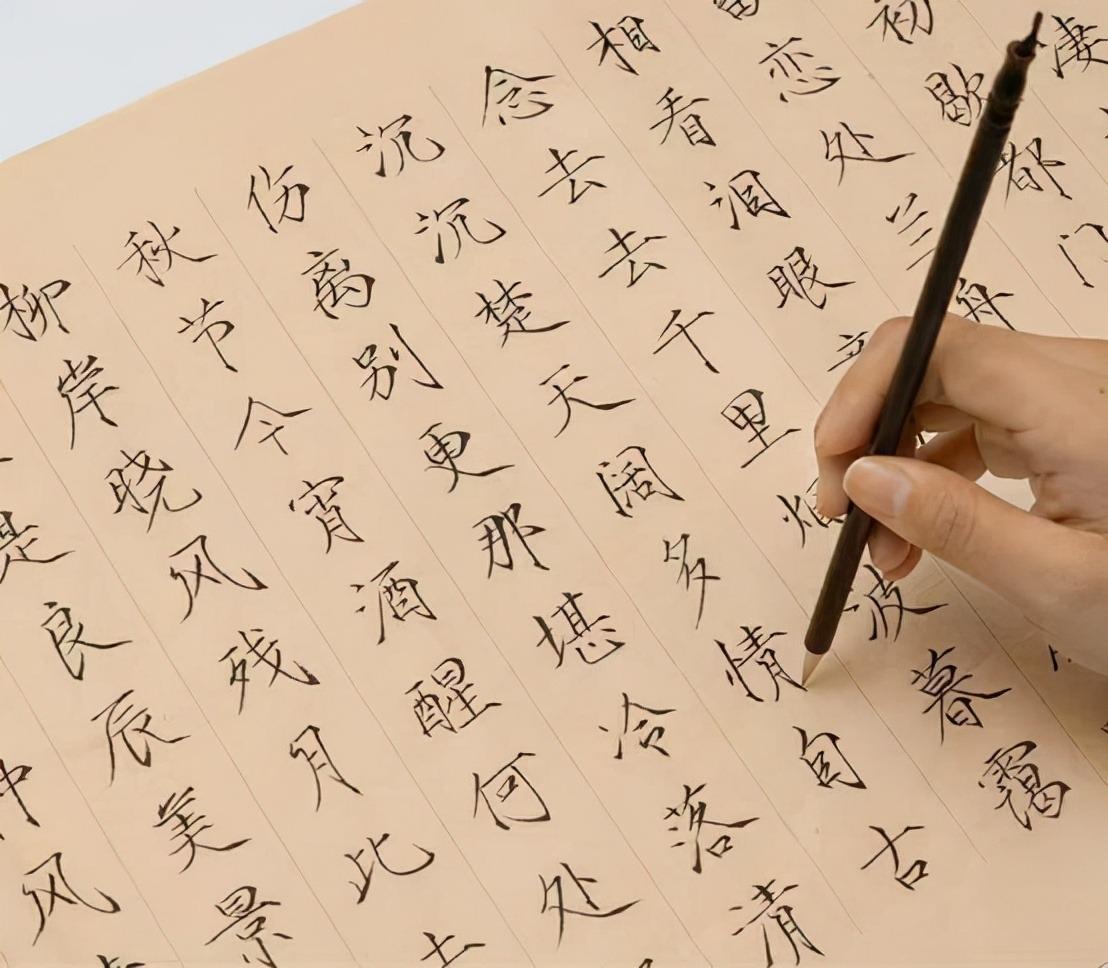 凄
初歇都门
恋处兰舟
相看泪眼
念去去千里烟波暮霭
沉沉楚天阔多情自古
伤离别更那堪冷落清
秋节今宵酒醒何处
柳岸晓风残月此去
是良辰美景
种风